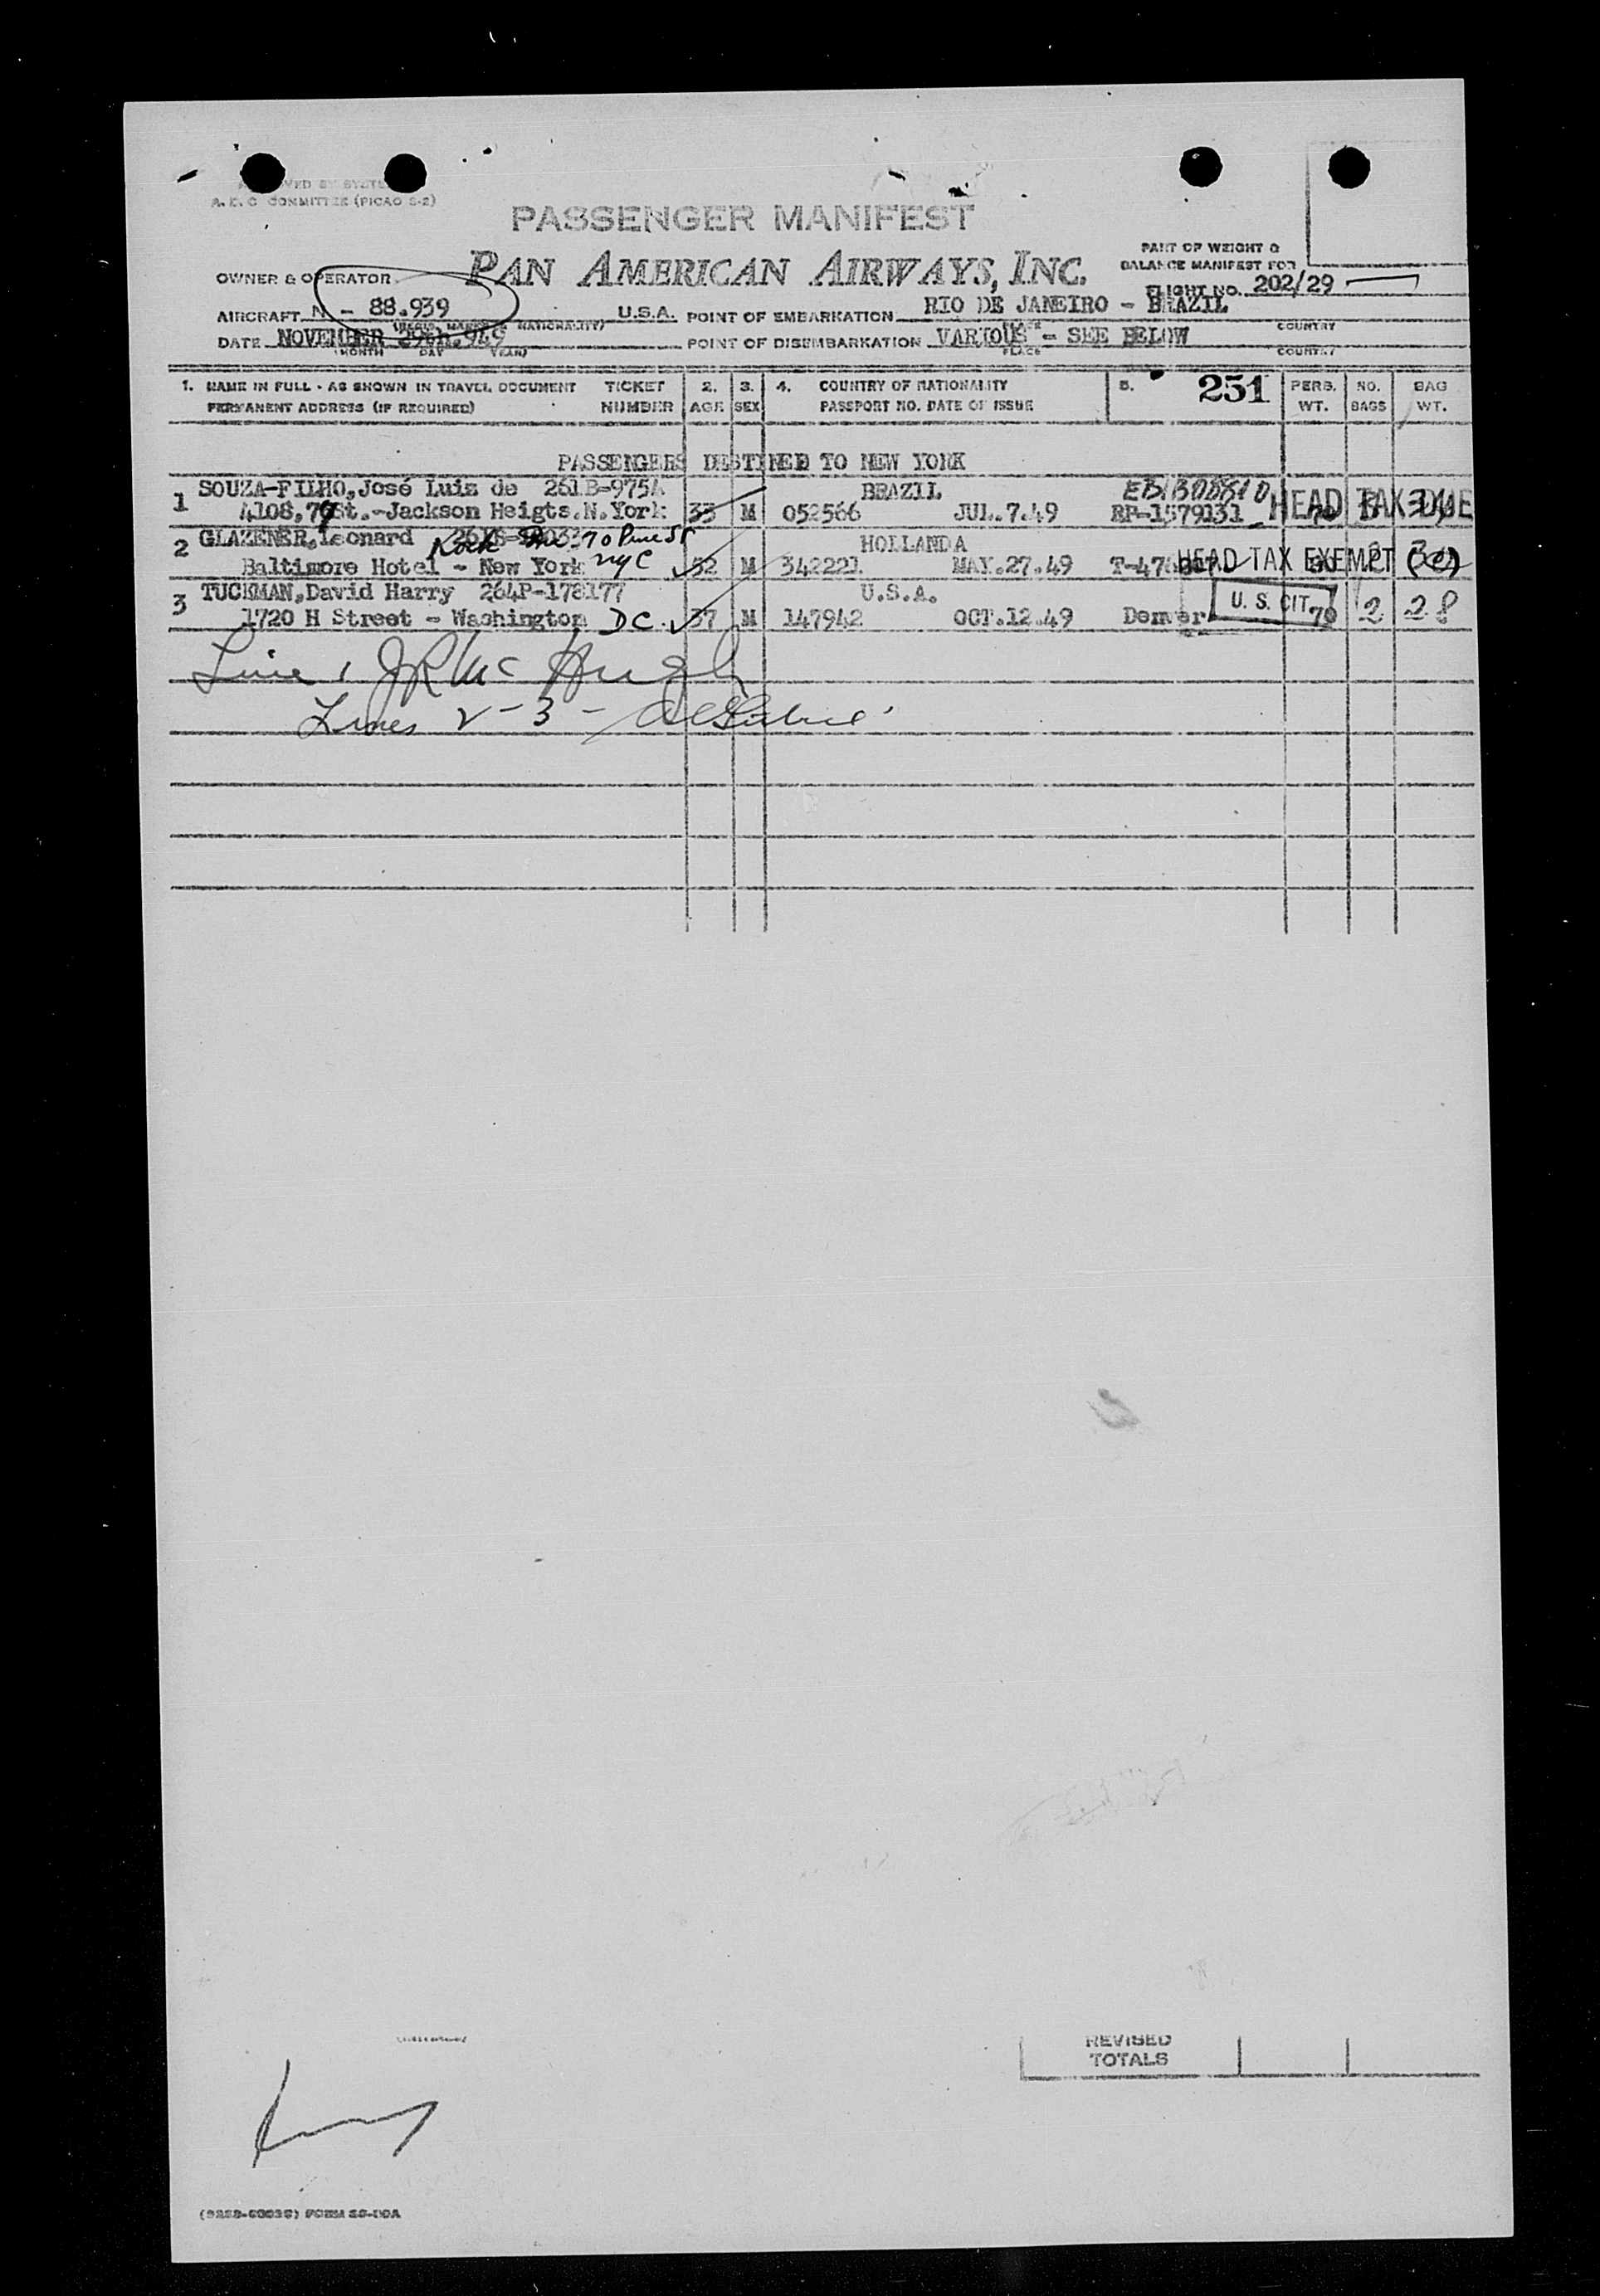 A. E. C COMMITTEE (PICAO S-2)
PASSENGER MANIFEST
PAN AMERICAN AIRWAYS, INC.
PART OF WEIGHT &
BALANCE MANIFEST FOR
FLIGHT NO. 202/29
OWNER & OPERATOR
AIRCRAFT N - 88.939 U.S.A. POINT OF EMBARKATION RIO DE JANEIRO - BRAZIL
(REGIS. MARKS & NATIONALITY) COUNTRY
DATE NOVEMBER 29th.949 POINT OF DISEMBARKATION VARIOUS - SEE BELOW
(MONTH DAY YEAR) PLACE COUNTRY
1. NAME IN FULL - AS SHOWN IN TRAVEL DOCUMENT TICKET 2. 3. 4. COUNTRY OF NATIONALITY 5. 251 PERS. NO. BAG
PERMANENT ADDRESS (IF REQUIRED) NUMBER AGE SEX PASSPORT NO. DATE OF ISSUE WT. BAGS WT.
PASSENGERS DESTINED TO NEW YORK
1 SOUZA-FILHO,José Luiz de 261B-975A BRAZIL
4108, St.-Jackson Heigts.N.York 33 M 052566 JUL.7.49 RP-1579131 HEAD TAX DUE
2 GLAZENER,Leonard 70 Pine St HOLLANDA
Baltimore Hotel - New York NYC 32 M 342221 MAY.27.49 HEAD TAX EXEMPT
3 TUCKMAN,David Harry 264P-178177 U.S.A.
1720 H Street - Washington DC. 37 M 147942 OCT.12.49 Denver U. S. CIT. 70 2 28
Line 1 JR Mc Hugh
Lines 2-3-
REVISED
TOTALS